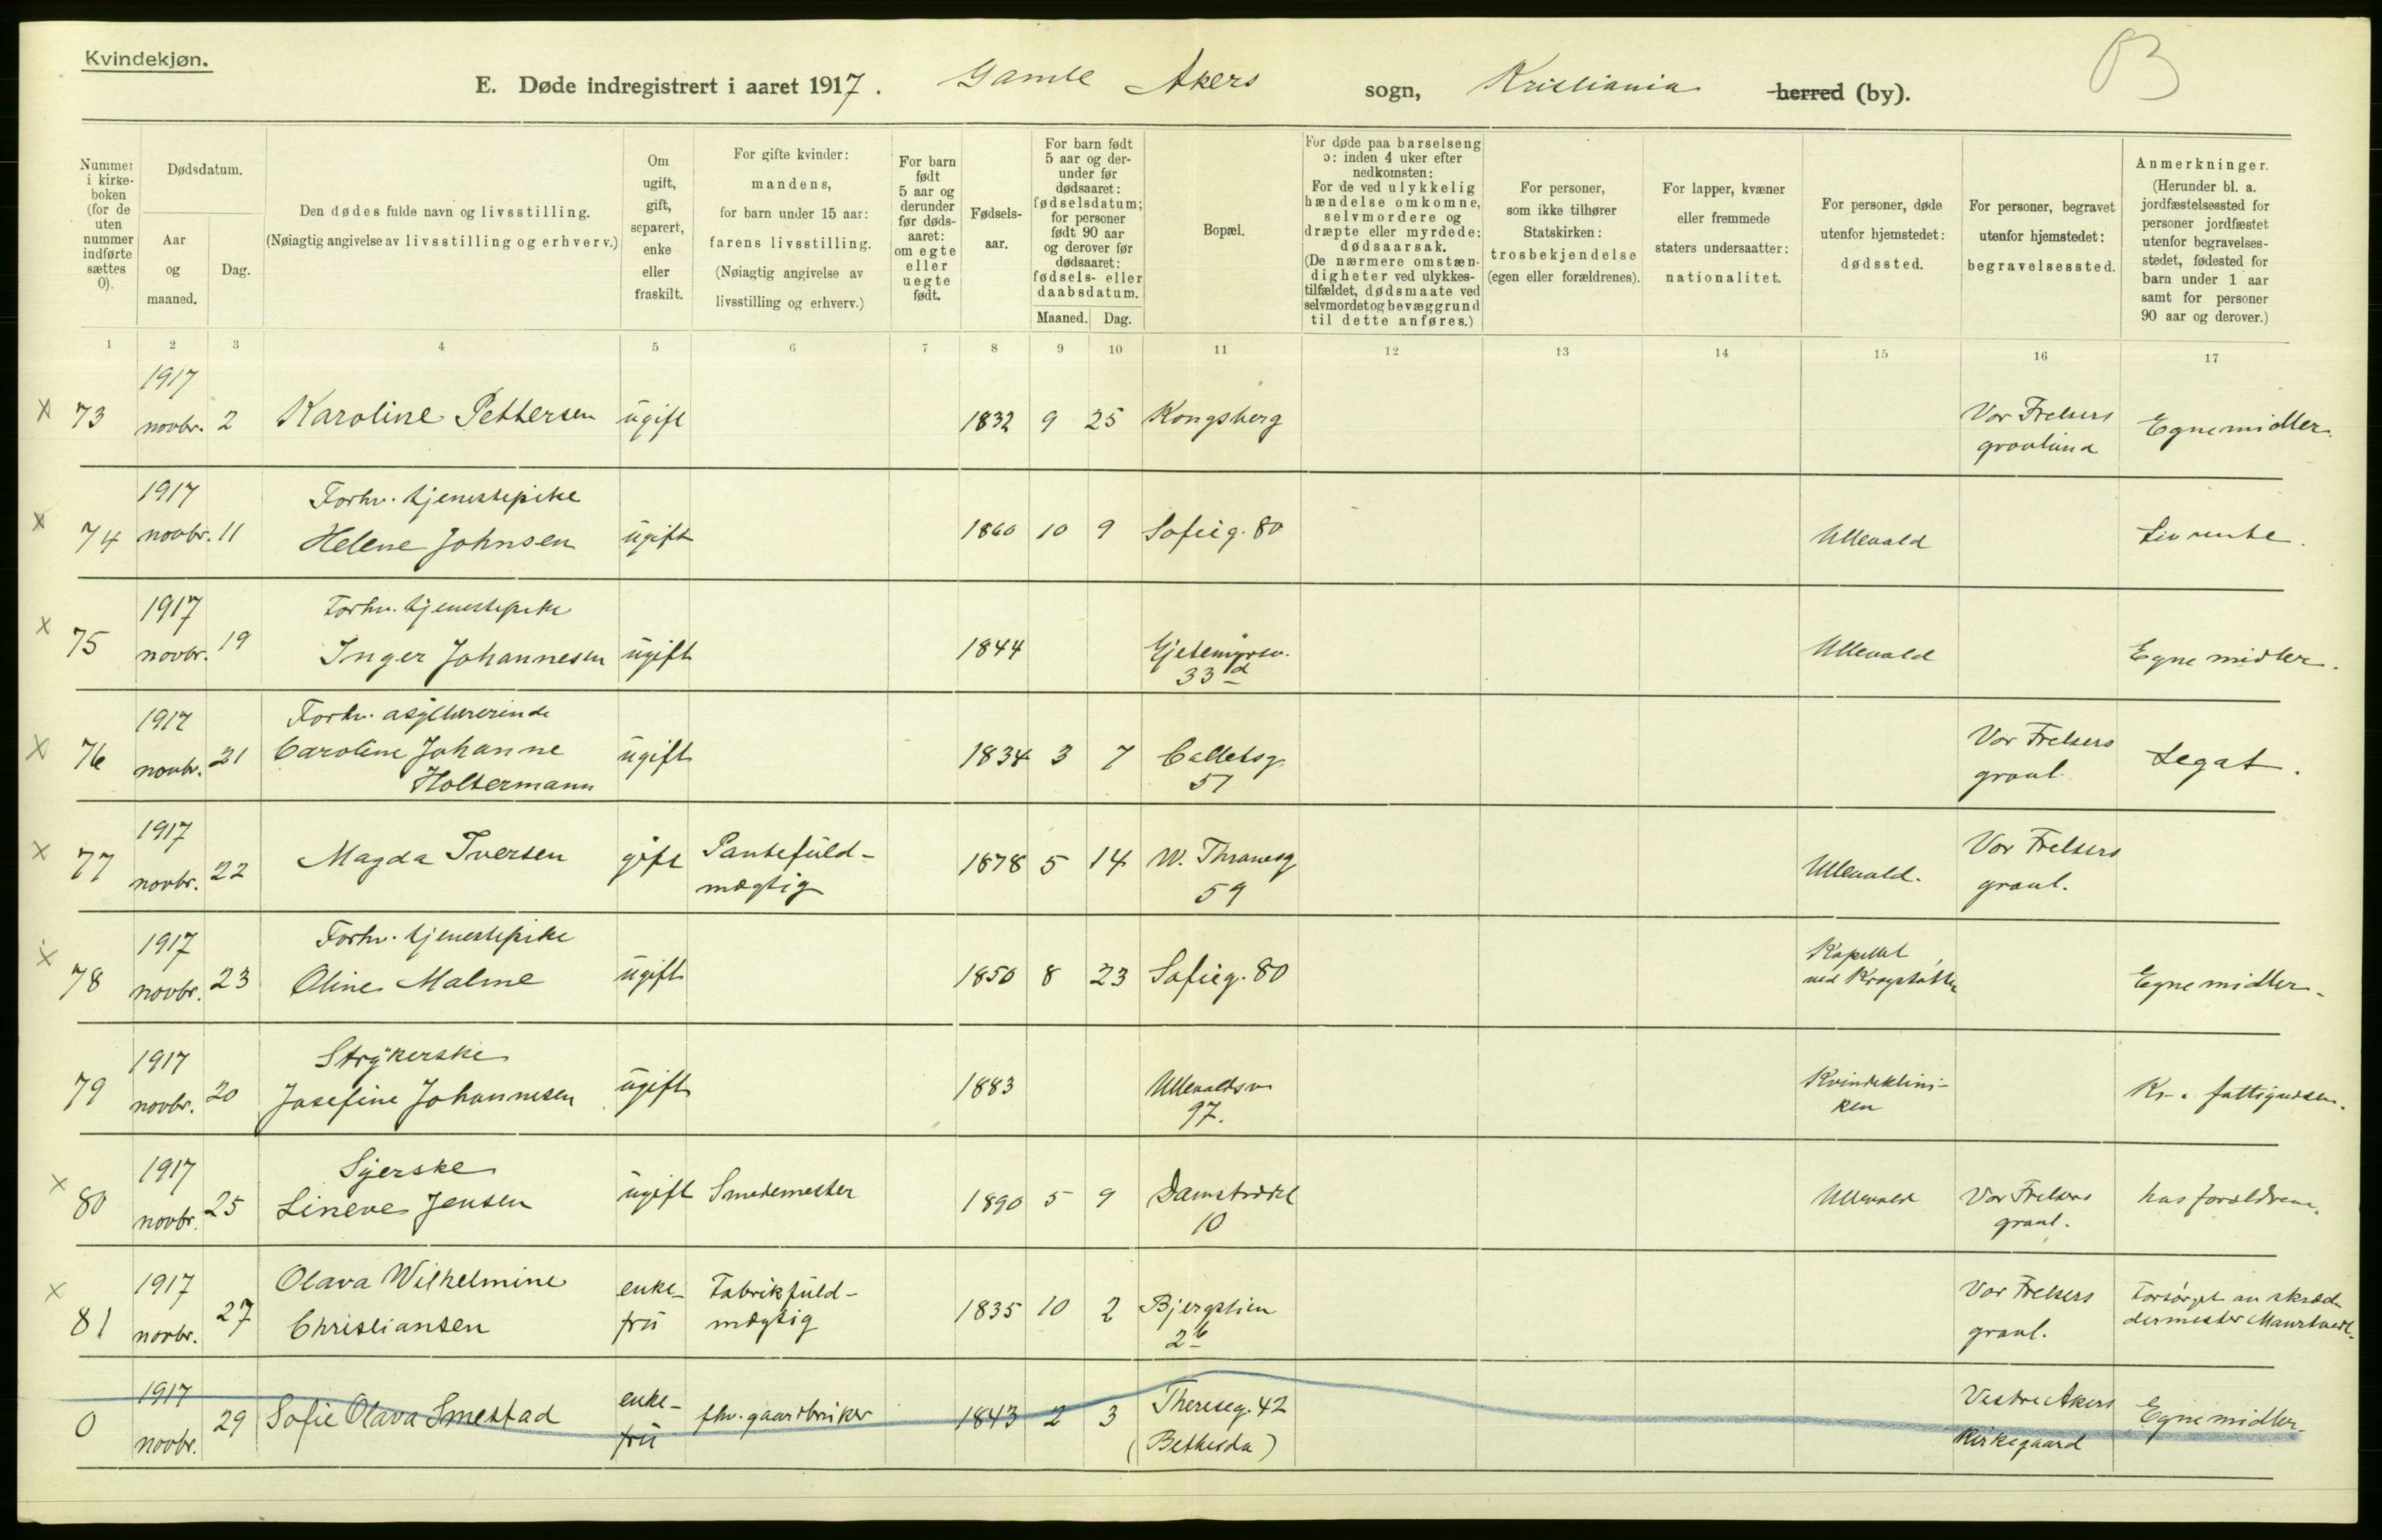 Kvindekjøn.
E. Døde indregistrert i aaret 1917. Gamle Akers sogn, Kristiania herred (by).
Nummer i kirkeboken (for de uten nummer indførte sættes 0).
Dødsdatum.
Aar og maaned.
Dag.
Den dødes fulde navn og livsstilling.
(Nøiagtig angivelse av livsstilling og erhverv.)
Om ugift, gift, separert, enke eller fraskilt.
For gifte kvinder: mandens, for barn under 15 aar: farens livsstilling.
(Nøiagtig angivelse av livsstilling og erhverv.)
For barn født 5 aar og derunder før dødsaaret: om egte eller uegte født.
Fødselsaar.
For barn født 5 aar og derunder før dødsaaret: fødselsdatum; for personer født 90 aar og derover før dødsaaret: fødsels- eller daabsdatum.
Maaned. Dag.
Bopæl.
For døde paa barselseng ɔ: inden 4 uker efter nedkomsten: For de ved ulykkelig hændelse omkomne, selvmordere og dræpte eller myrdede: dødsaarsak.
(De nærmere omstændigheter ved ulykkestilfældet, dødsmaate ved selvmordet og bevæggrund til dette anføres.)
For personer, som ikke tilhører Statskirken: trosbekjendelse (egen eller forældrenes).
For lapper, kvæner eller fremmede staters undersaatter: nationalitet.
For personer, døde utenfor hjemstedet: dødssted.
For personer, begravet utenfor hjemstedet: begravelsessted.
Anmerkninger.
(Herunder bl. a. jordfæstelsessted for personer jordfæstet utenfor begravelsesstedet, fødested for barn under 1 aar samt for personer 90 aar og derover.)
1 2 3 4 5 6 7 8 9 10 11 12 13 14 15 16 17
x 73 1917 novbr. 2 Karoline Pettersen ugift 1832 9 25 Kongsberg Vor Frelsers gravlund Egne midler.
x 74 1917 novbr. 11 Forhv. tjenestepike Helene Johnsen ugift 1860 10 9 Sofieg. 80 Ullevald Livrente.
x 75 1917 novbr. 19 Forhv. tjenestepike Inger Johannesen ugift 1844 Gjetemyrsv. 33 d Ullevald Egne midler.
x 76 1917 novbr. 21 Forhv. asyllærerinde Caroline Johanne Holtermann ugift 1834 3 7 Colletsg. 57 Vor Frelsers gravl. Legat.
x 77 1917 novbr. 22 Magda Iversen gift Pantefuldmægtig 1878 5 14 W. Thranesg 59 Ullevald. Vor Frelsers gravl.
x 78 1917 novbr. 23 Forhv. tjenestepike Oline Malme ugift 1850 8 23 Sofieg. 80 Kapellet ved Krogstøtten Egne midler.
79 1917 novbr. 20 Strykerske Josefine Johannesen ugift 1883 Ullevaldsv 97. Kvindekliniken Kr.a fattigvæsen.
x 80 1917 novbr. 25 Syerske Lineve Jensen ugift Smedemester 1890 5 9 Damstrædet 10 Ullevald Vor Frelsers gravl. hos forældrene.
x 81 1917 novbr. 27 Olava Wilhelmine Christiansen enkefru Fabrikfuldmægtig 1835 10 2 Bjergstien 2 b Vor Frelsers gravl. Forsørget av skræddermester
0 1917 novbr. 29 Sofie Olava Smestad enkefru fhv. gaardbruker 1843 2 3 Thereseg. 42 (Bethesda) Vestre Akers Kirkegaard Egne midler